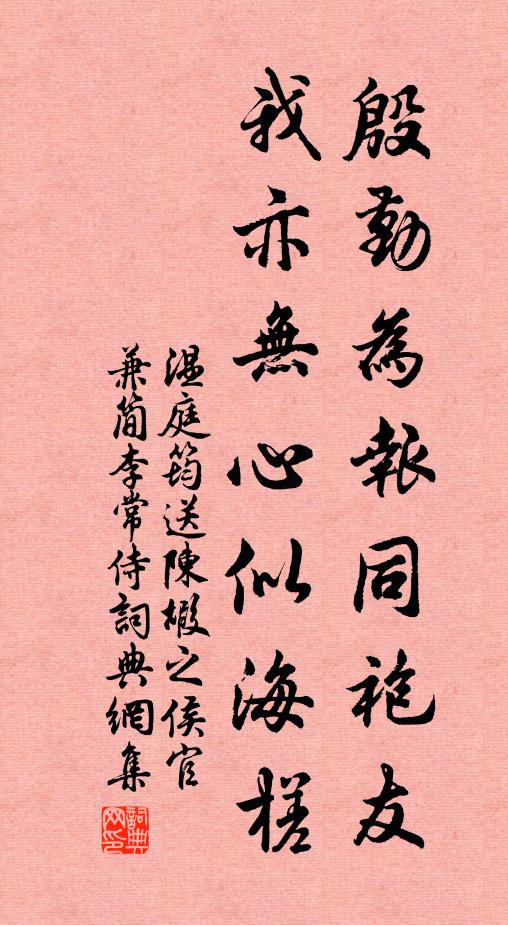 殷勤為報同袍友
我亦無心似海槎
温庭筠送陳嘏之侯官
兼簡李常侍詞典網集
詞典网印